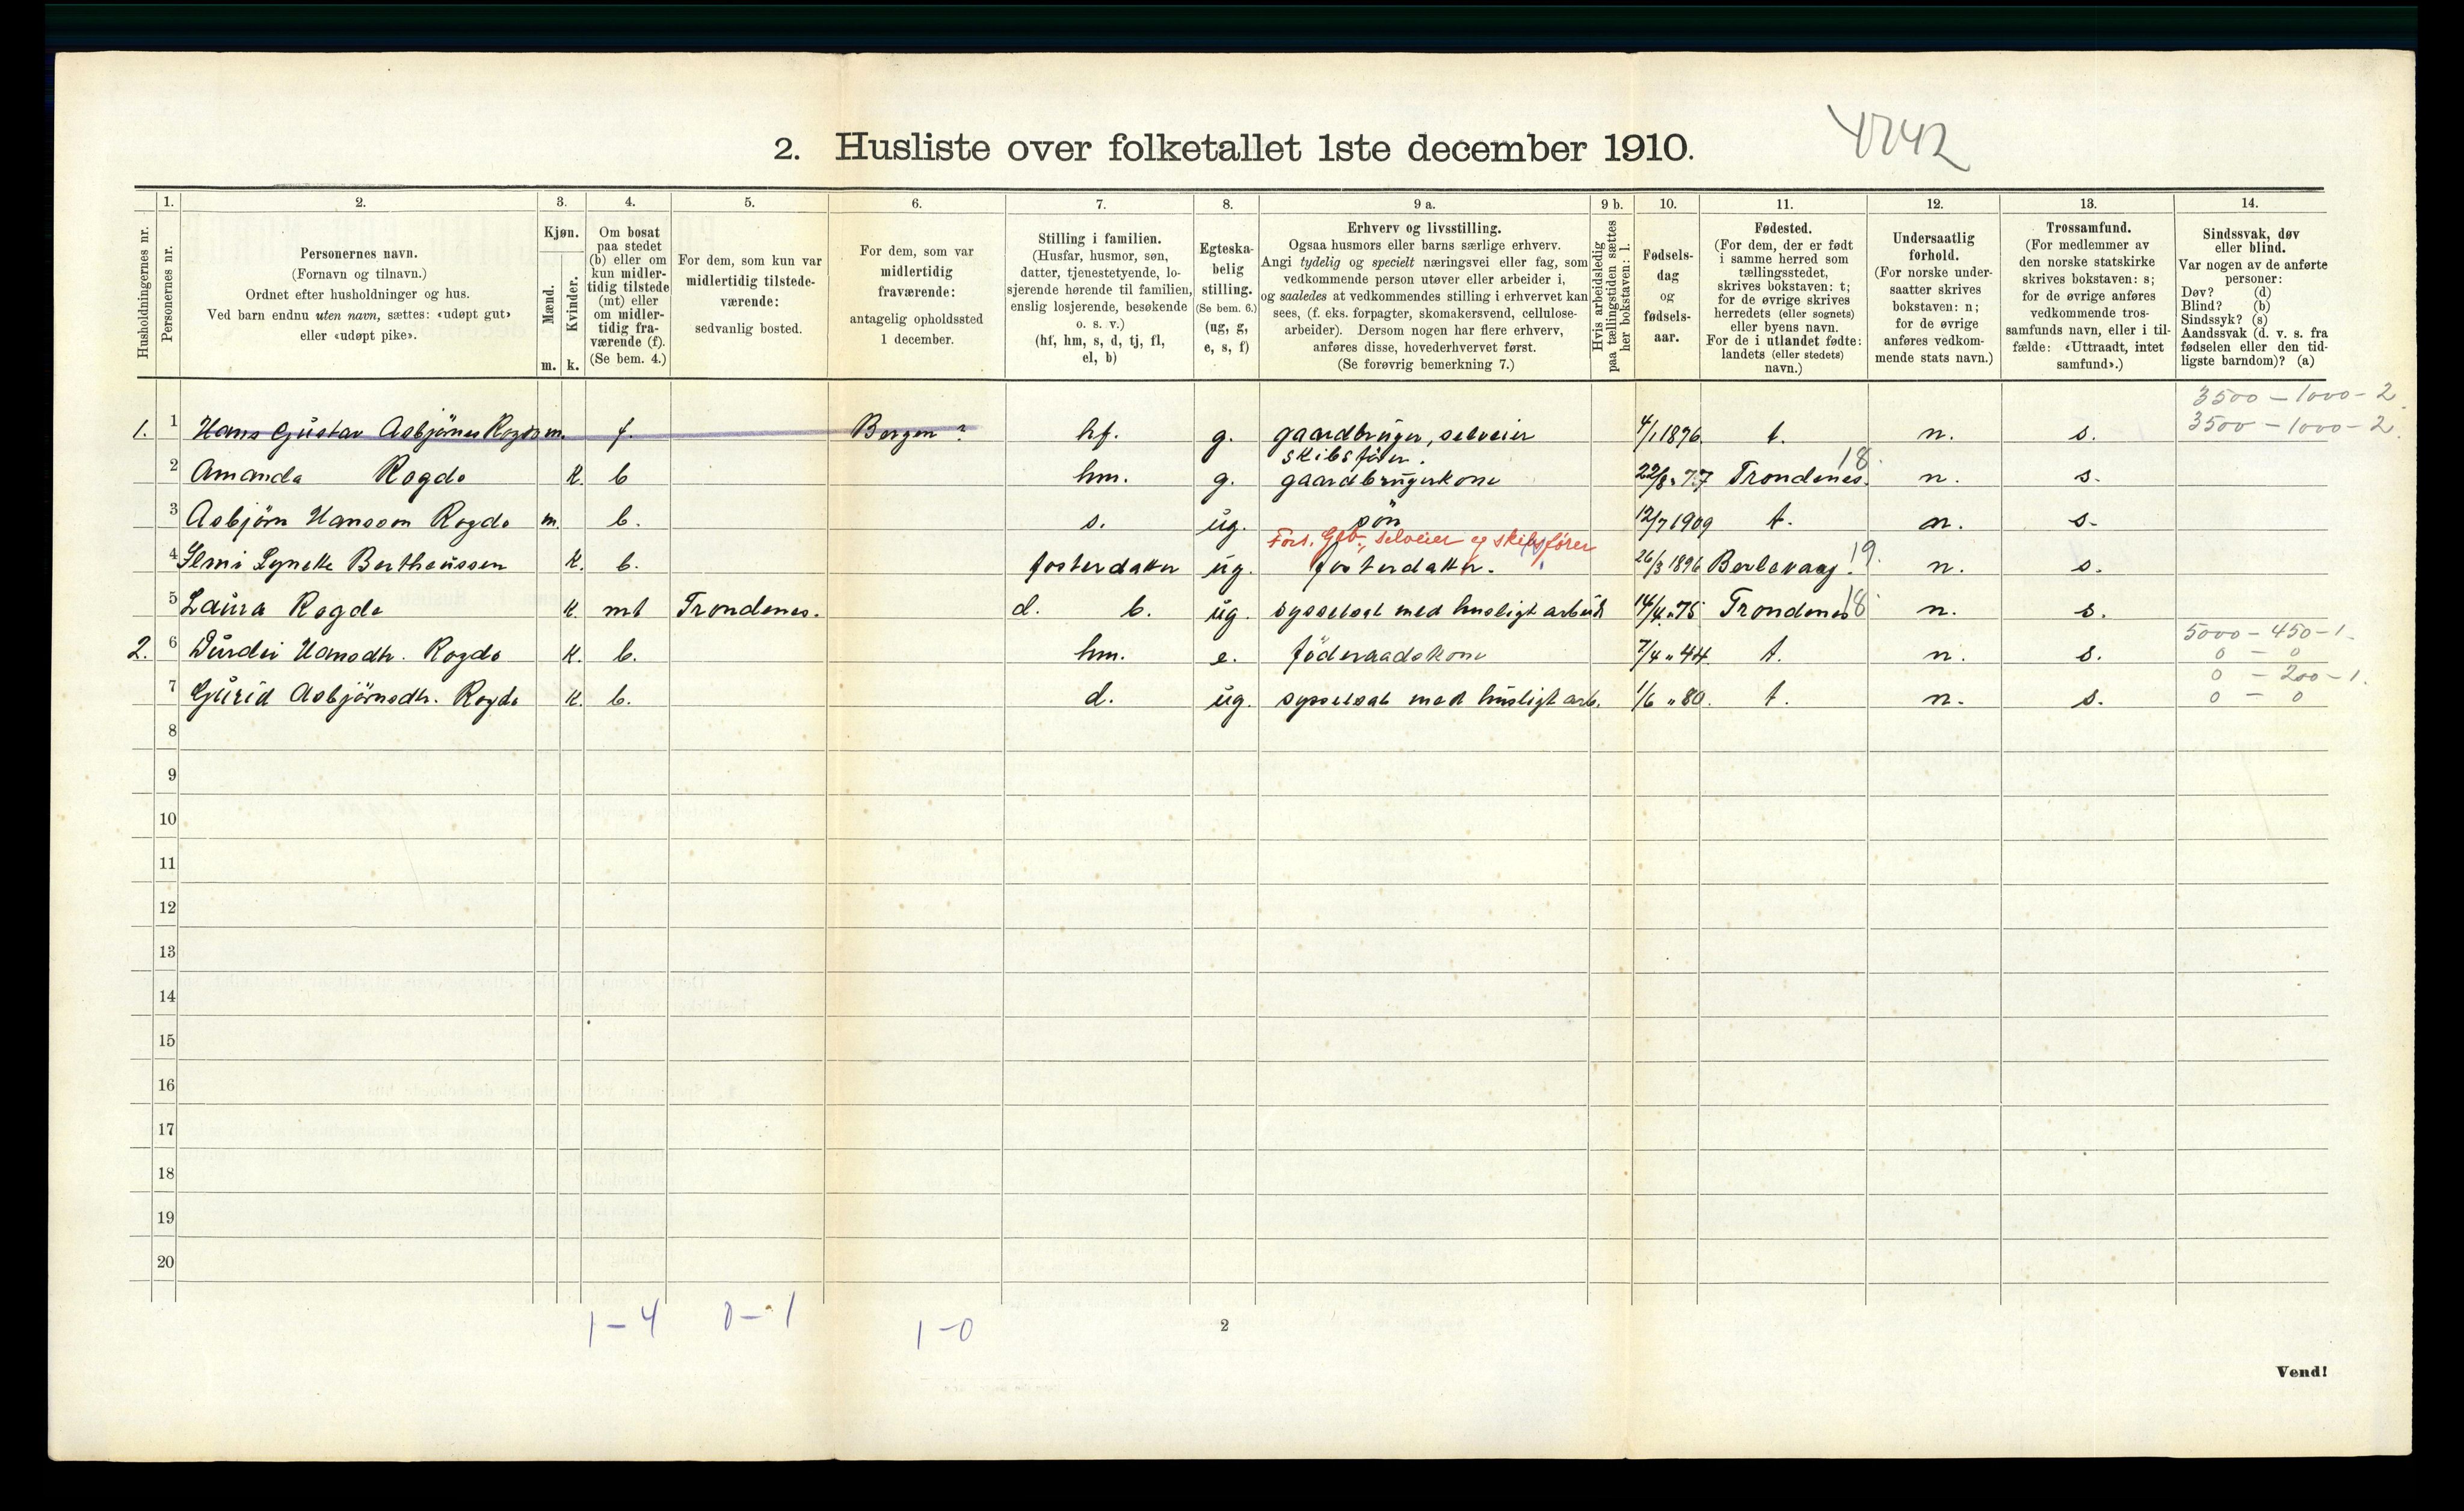 2. Husliste over folketallet 1ste december 1910.
4242
1. 2. 3. 4. 5. 6. 7. 8. 9 a. 9 b. 10. 11. 12. 13. 14.
Husholdningernes nr.
Personernes nr.
Personernes navn.
(Fornavn og tilnavn.)
Ordnet efter husholdninger og hus.
Ved barn endnu uten navn, sættes: «udøpt gut»
eller «udøpt pike».
Kjøn.
Mænd.
Kvinder.
m. k.
Om bosat
paa stedet
(b) eller om
kun midler-
tidig tilstede
(mt) eller
om midler-
tidig fra-
værende (f).
(Se bem. 4.)
For dem, som kun var
midlertidig tilstede-
værende:
sedvanlig bosted.
For dem, som var
midlertidig
fraværende:
antagelig opholdssted
1 december.
Stilling i familien.
(Husfar, husmor, søn,
datter, tjenestetyende, lo-
sjerende hørende til familien,
enslig losjerende, besøkende
o. s. v.)
(hf, hm, s, d, tj, fl,
el, b)
Egteska-
belig
stilling.
(Se bem. 6.)
(ug, g,
e, s, f)
Erhverv og livsstilling.
Ogsaa husmors eller barns særlige erhverv.
Angi tydelig og specielt næringsvei eller fag, som
vedkommende person utøver eller arbeider i,
og saaledes at vedkommendes stilling i erhvervet kan
sees, (f. eks. forpagter, skomakersvend, cellulose-
arbeider). Dersom nogen har flere erhverv,
anføres disse, hovederhvervet først.
(Se forøvrig bemerkning 7.)
Hvis arbeidsledig
paa tællingstiden sættes
her bokstaven: l.
Fødsels-
dag
og
fødsels-
aar.
Fødested.
(For dem, der er født
i samme herred som
tællingsstedet,
skrives bokstaven: t;
for de øvrige skrives
herredets (eller sognets)
eller byens navn.
For de i utlandet fødte:
landets (eller stedets)
navn.)
Undersaatlig
forhold.
(For norske under-
saatter skrives
bokstaven: n;
for de øvrige
anføres vedkom-
mende stats navn.)
Trossamfund.
(For medlemmer av
den norske statskirke
skrives bokstaven: s;
for de øvrige anføres
vedkommende tros-
samfunds navn, eller i til-
fælde: «Uttraadt, intet
samfund».)
Sindssvak, døv
eller blind.
Var nogen av de anførte
personer:
Døv? (d)
Blind? (b)
Sindssyk? (s)
Aandssvak (d. v. s. fra
fødselen eller den tid-
ligste barndom)? (a)
3500 - 1000 - 2
1. 1 Hans Gustav Asbjörnes Rogdo m. f. Bergen? hf. g. gaardbruger, selveier 4/1 1876 t. n. s. 3500 - 1000 - 2
skibsförer. 18.
2 Amanda Rogdo K. b hm. g. gaardbrugerkone 22/8 " 77 Trondenes. n. s.
3 Asbjörn Hanssøn Rogdo m. b. s. ug. sön 12/7 1909 t. n. s.
Fors. Gbr., selveier og skibsfører 19.
4 K. b. fosterdatter ug. fosterdatter. 26/3 1896 Berlevaag n. s.
5 Laura Rogdo K. mt Trondenes. d. b. ug. sysselsat med husligt arbeid 14/4 " 75 Trondenes 18 n. s.
5000 - 450 - 1.
2. 6 Durdei Hansdtr. Rogdo K. b. hm. e. föderaadskone 7/4 " 44. t. n. s. 0 - 0
0 - 200 - 1.
7 Gurid Asbjörnsdtr. Rogdo K. b. d. ug. sysselsat med husligt arb. 1/6 " 80. t. n. s. 0 - 0
8
9
10
11
12
13
14
15
16
17
18
19
20
1 - 4 0 - 1 1 - 0
2
Vend!